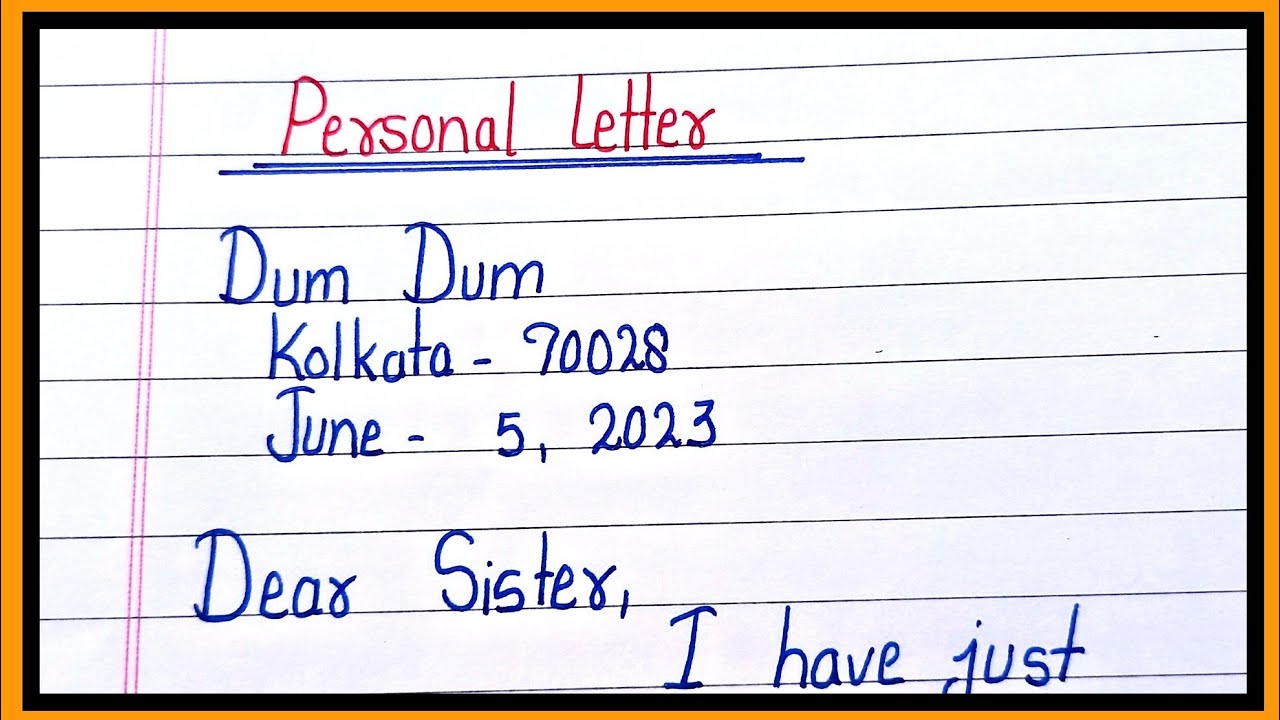 Personal Letter
Dum Dum
Kolkata - 70028
June - 5, 2023
Dear Sister,
I have just